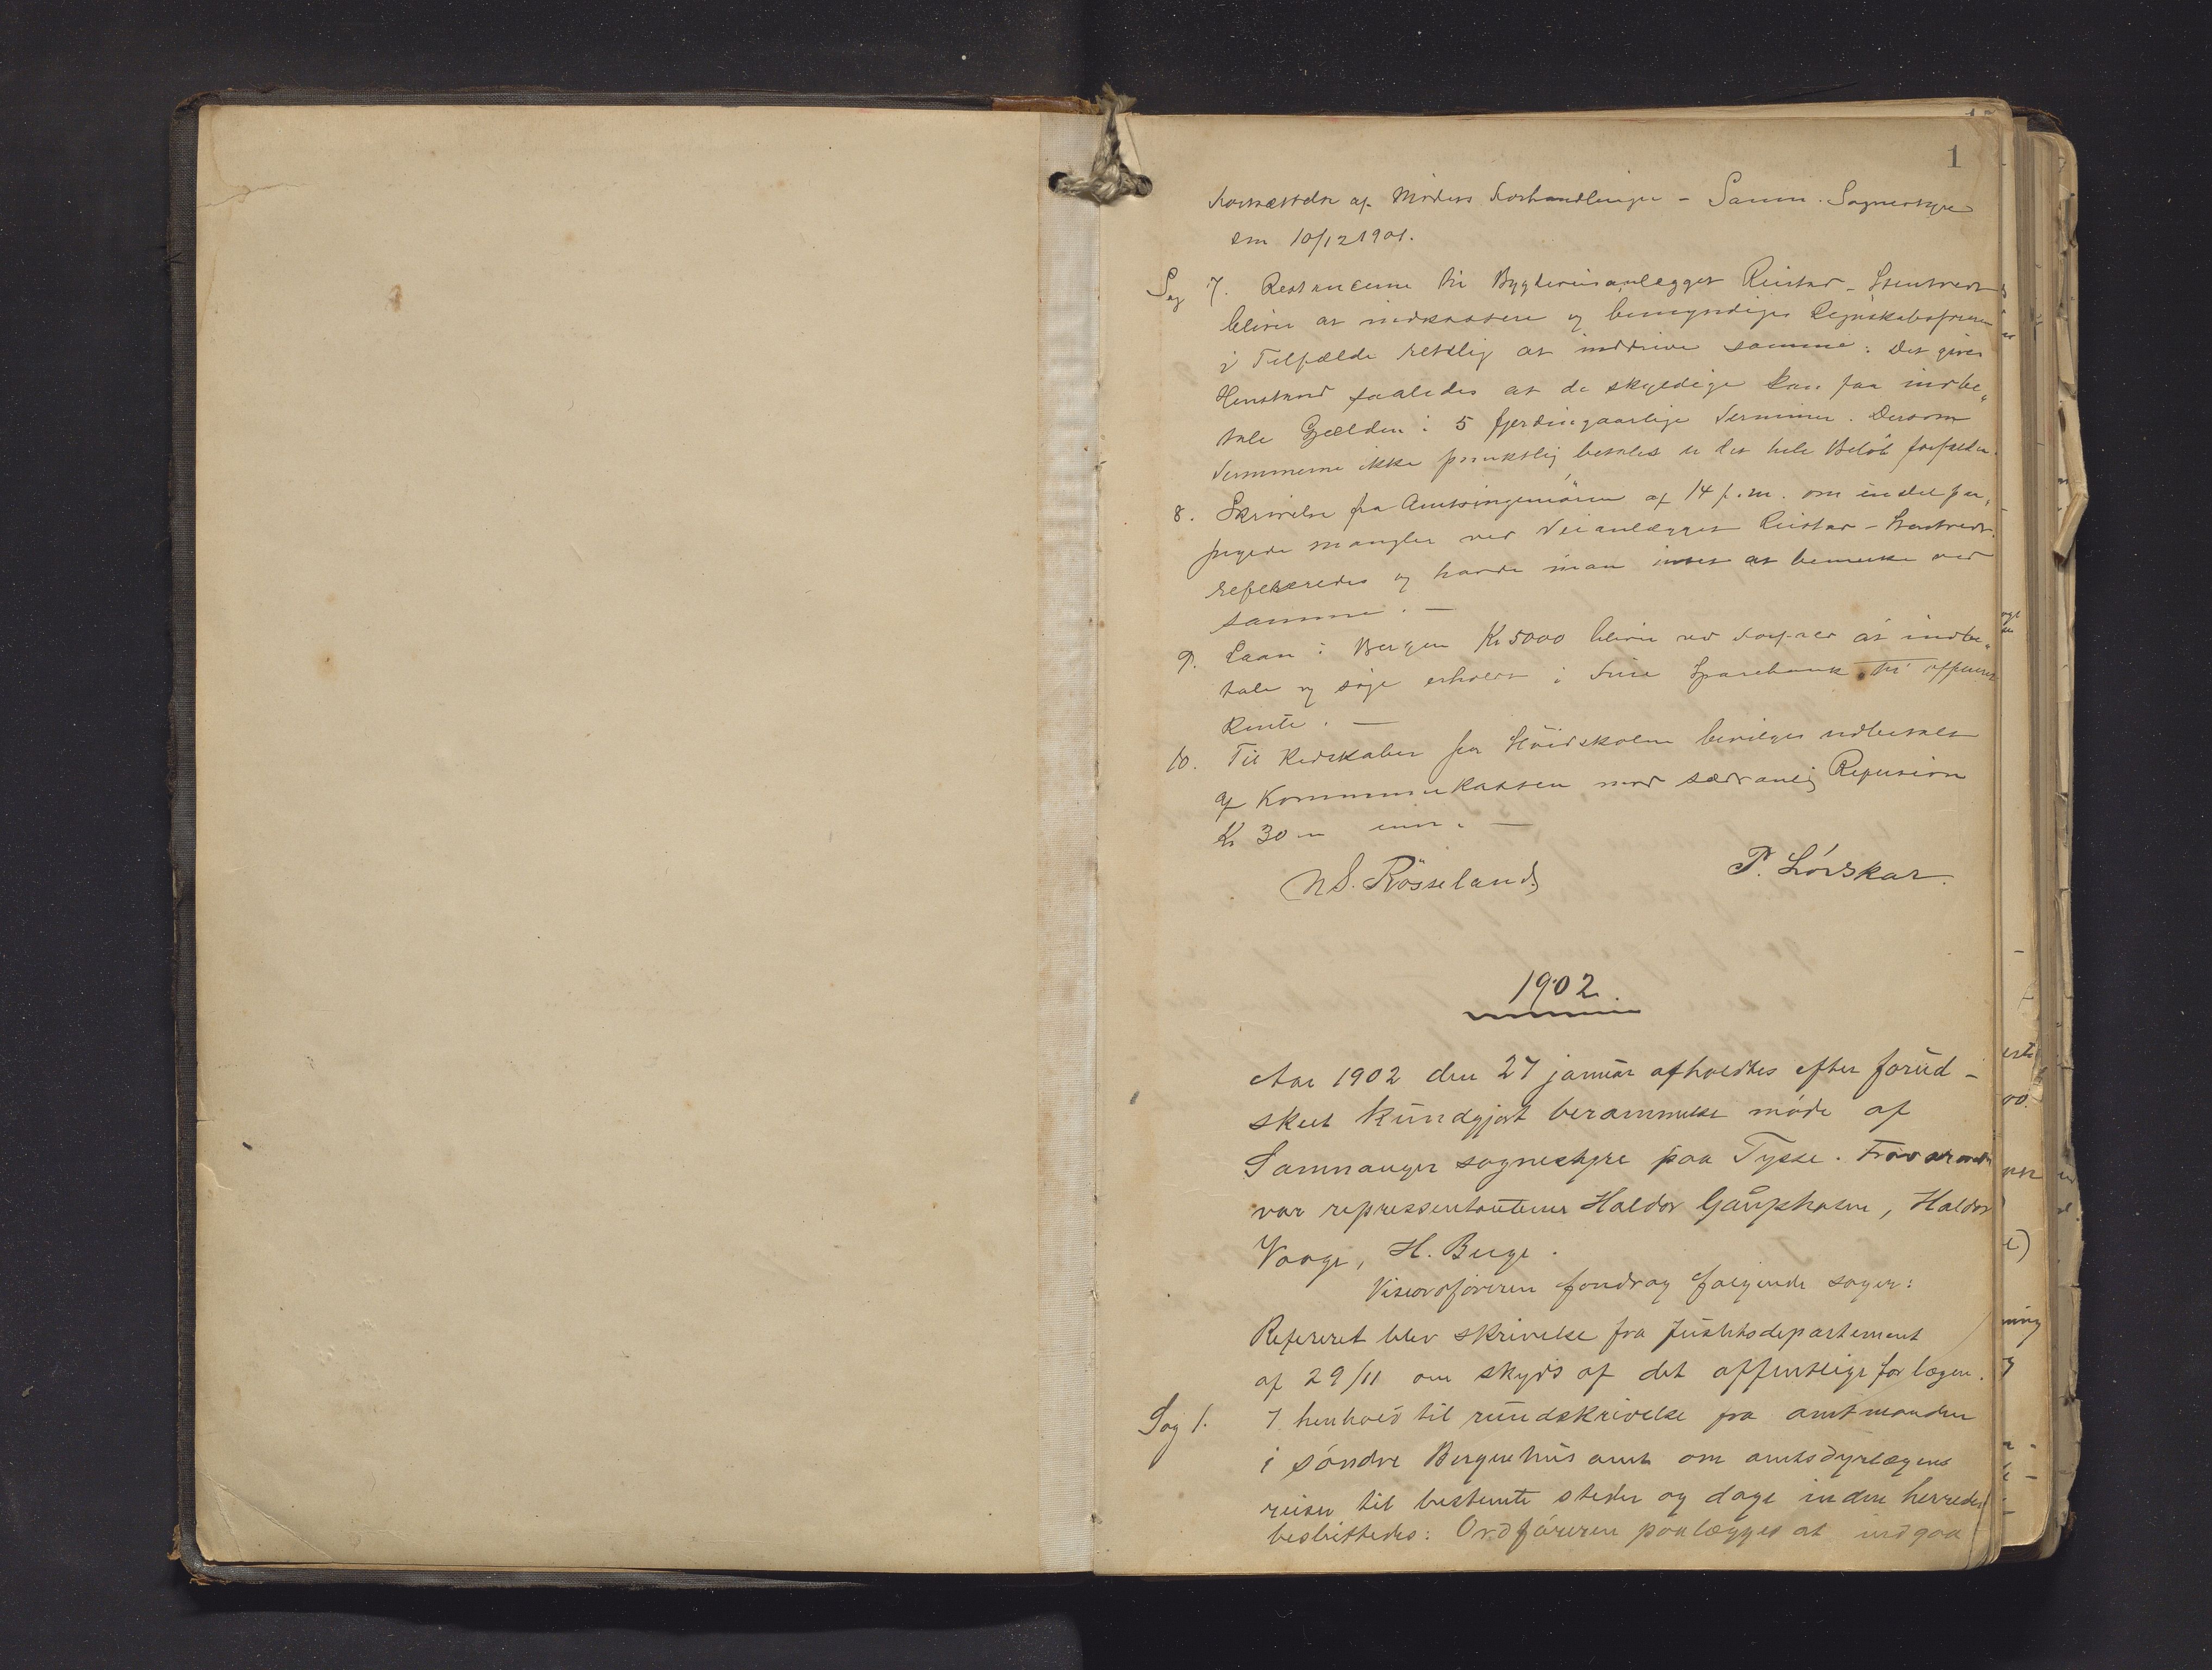 1
Fortsættelse af Mødets Forhandlinger - Samn. Sognestyre
den 10/12 1901.
Sag 7. Restancerne til Bygdeveisanlægget Reistad - Stentvedt
bliver at indkassere og bemyndiges Regnskabsføreren
i Tilfælde retslig at inddrive samme. Det gives
Henstand saaledes at de skyldige kan faa indbe„
tale Gjælden i 5 fjerdingaarlige Terminer. Dersom
Terminerne ikke punktlig betales er det hele Beløb forfalden.
8. Skrivelse fra Amtsingeniøren af 14 f.m. om endel paa„
pegede mangler ved Veianlægget Reistad - Stentvedt
refereredes og havde man intet at bemerke ved
samme. —
9. Laan i Bergen Kr 5000 bliver ved Forfald at indbe„
tale og søge erholdt i Fuse Sparebank til
Rente. —
10. Til Redskaber for Sløidskolen bevilges udbetalt
af Kommunekassen mod sædvanlig Refusion
Kr 30 —
N S. Røsseland
P. Lønskar.
1902.
Aar 1902 den 27 januar afholdtes efter forud -
skeet kundgjort berammelse møde af
Samnanger sognestyre paa Tysse. Fraværende
var repressentanterne Haldor Gaupholm, Haldor
Vaage, H. Berge.
Viseordføreren foredrog følgende sager:
Refereret blev skrivelse fra Justitsdepartement
af 29/11 om skyds af det offentlige for lægen.
Sag 1. I henhold til rundskrivelse fra amtmanden
i søndre Bergenhus amt om amtsdyrlægens
reiser til bestemte steder og dage inden herredet
besluttedes: Ordføreren paalægges at indgaa